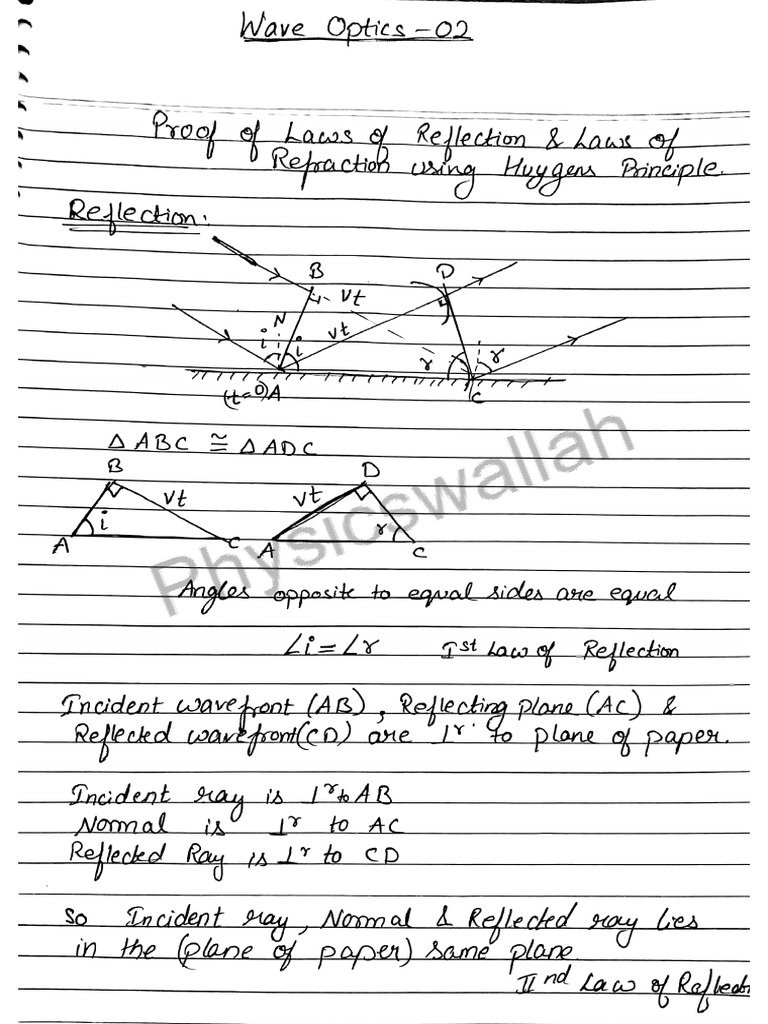 Wave Optics - 02
Proof of Laws of Reflection & Laws of
Refraction using Huygens Principle.
Reflection:
B
D
vt
N
i
i
vt
r
r
(t=0)A
C
Δ ABC ≅ Δ ADC
B
D
vt
vt
i
r
A
C
A
C
Physicswallah
Angles opposite to equal sides are equal
∠i = ∠r Ist Law of Reflection
Incident wavefront (AB), Reflecting plane (AC) &
Reflected wavefront (CD) are ⊥r to plane of paper.
Incident ray is ⊥r to AB
Normal is ⊥r to AC
Reflected Ray is ⊥r to CD
So Incident ray, Normal & Reflected ray lies
in the (plane of paper) same plane
IInd Law of Reflectio